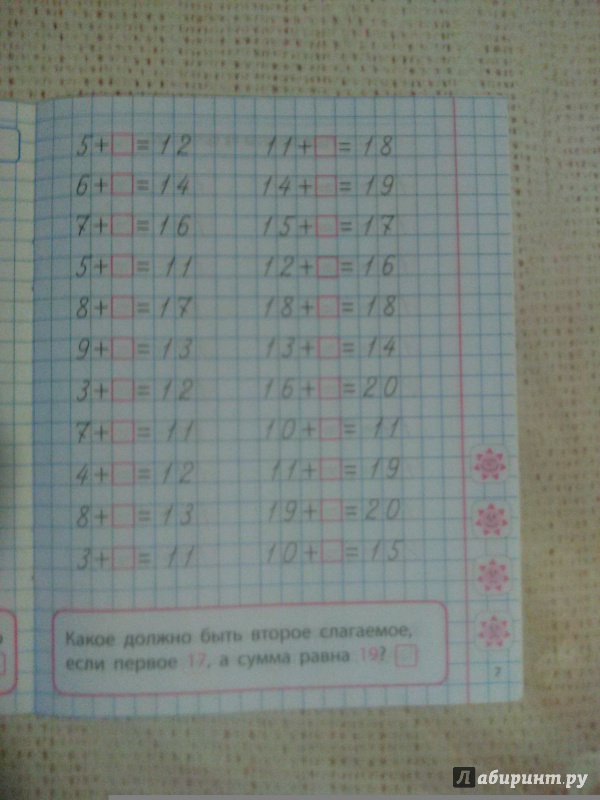 5+□=12 11+□=18
6+□=14 14+□=19
7+□=16 15+□=17
5+□=11 12+□=16
8+□=17 18+□=18
9+□=13 13+□=14
3+□=12 16+□=20
7+□=11 10+□=11
4+□=12 11+□=19
8+□=13 19+□=20
3+□=11 10+□=15
Какое должно быть второе слагаемое,
если первое 17, а сумма равна 19? □
7
Лабиринт.ру